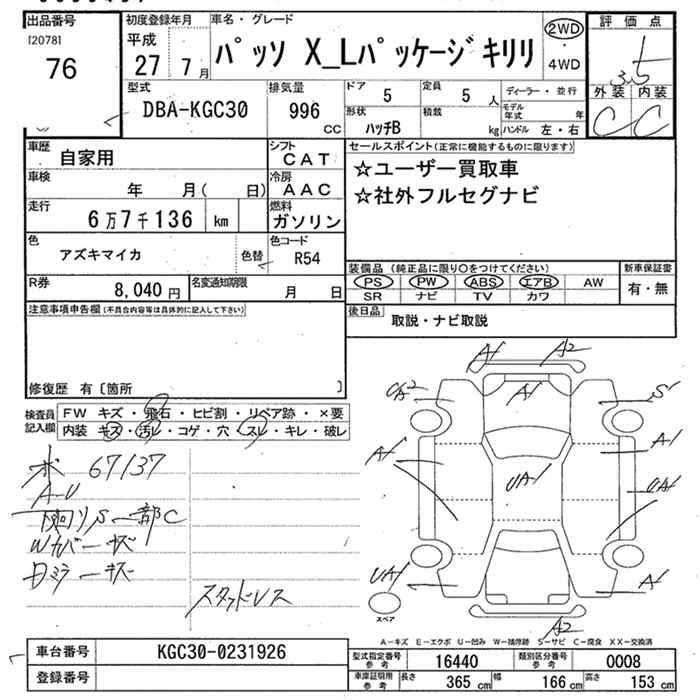 出品番号
[2078]
76
初度登録年月
平成
27 7月
車名・グレード
パッソ X_Lパッケージ キリリ
2WD
・
4WD
評価点
3.5
外装 内装
C C
型式
DBA-KGC30
排気量
996
CC
ドア
5
定員
5 人
形状
ハッチB
積載
kg
ディーラー・並行
モデル
年式 年
ハンドル 左・右
車歴
自家用
シフト
CAT
車検
年 月( 日)
冷房
AAC
走行
6万7千136 km
燃料
ガソリン
色
アズキマイカ
色替
色コード
R54
R券
8,040 円
名変通知期限
月 日
セールスポイント(正常に機能するものに限ります)
☆ユーザー買取車
☆社外フルセグナビ
装備品 (純正品に限り○をつけてください)
PS PW ABS エアB AW
SR ナビ TV カワ
新車保証書
有・無
後日品
取説・ナビ取説
注意事項申告欄(不具合内容等は具体的に記入して下さい)
修復歴 有〔箇所 〕
検査員
記入欄
FW キズ・飛石・ヒビ割・リペア跡・×要
内装 キズ・汚レ・コゲ・穴・スレ・キレ・破レ
67137
A-U
下廻りS 一部C
Wカバーキズ
Dミラーキズ
スタッドレス
A1 A2
UA2 A1 S1
A1 A1
UA1 UA1
UA1 A1
スペア
A2
A-キズ E-エクボ U-凹み W-補修跡 S-サビ C-腐食 XX-交換済
車台番号
KGC30-0231926
登録番号
型式指定番号
参考
16440
類別区分番号
参考
0008
車庫証明用
参考
長さ
365 cm
幅
166 cm
高さ
153 cm